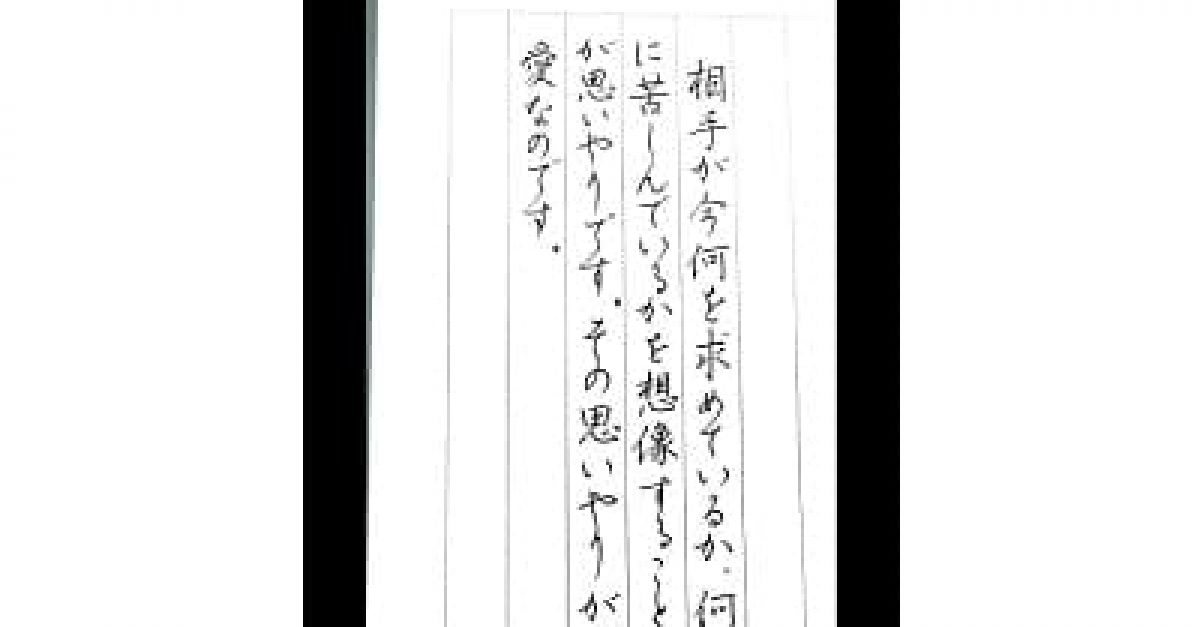 相手が今何を求めているか、何
に苦しんでいるかを想像すること
が思いやりです。その思いやりが
愛なのです。